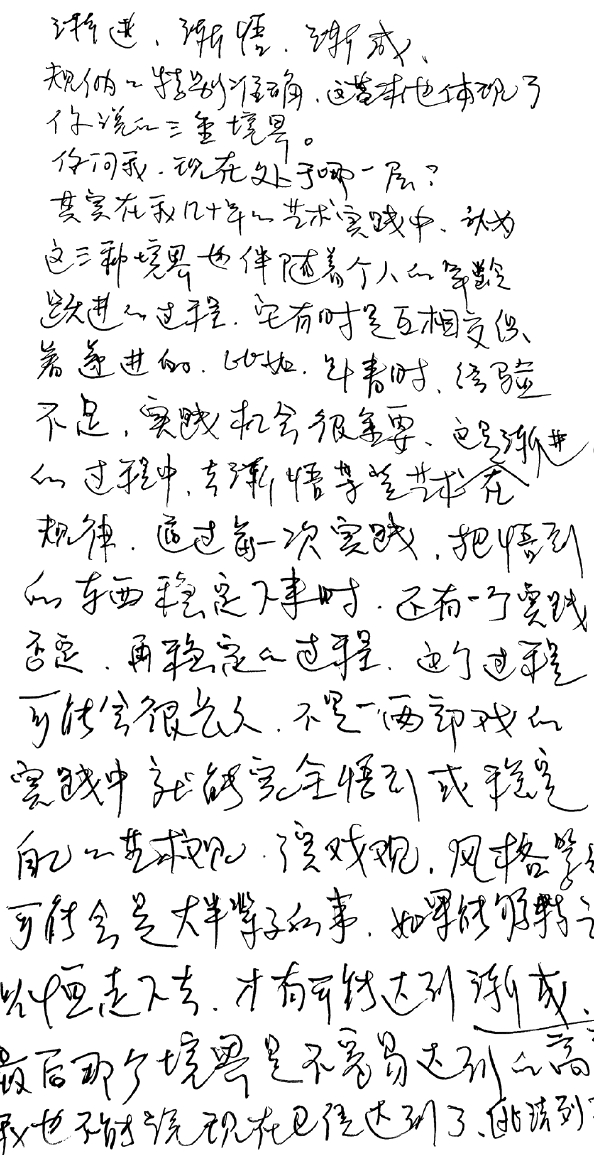 渐进、渐悟、渐成、
规纳的特别准确,这基本也体现了
你说的三重境界。
你问我,现在处于哪一层?
其实在我几十年的艺术实践中,认为
这三种境界也伴随着个人的年龄
跃进的过程,它有时是互相交
着递进的,比如,年青时,经验
不足,实践机会很重要,这是渐进
的过程中,去渐悟 艺术在
规律,通过每一次实践,把悟到
的东西稳定下来时,还有一个实践
否定,再稳定的过程,这个过程
可能会很长久,不是一两部戏的
实践中就能完全悟到或稳定
自己的艺术观、演戏观,风格等
可能会是大半辈子的事,如果能够持之
以恒走下去,才有可能达到渐成、
最后那个境界是不容易达到的高
我也不能说现在已经达到了、